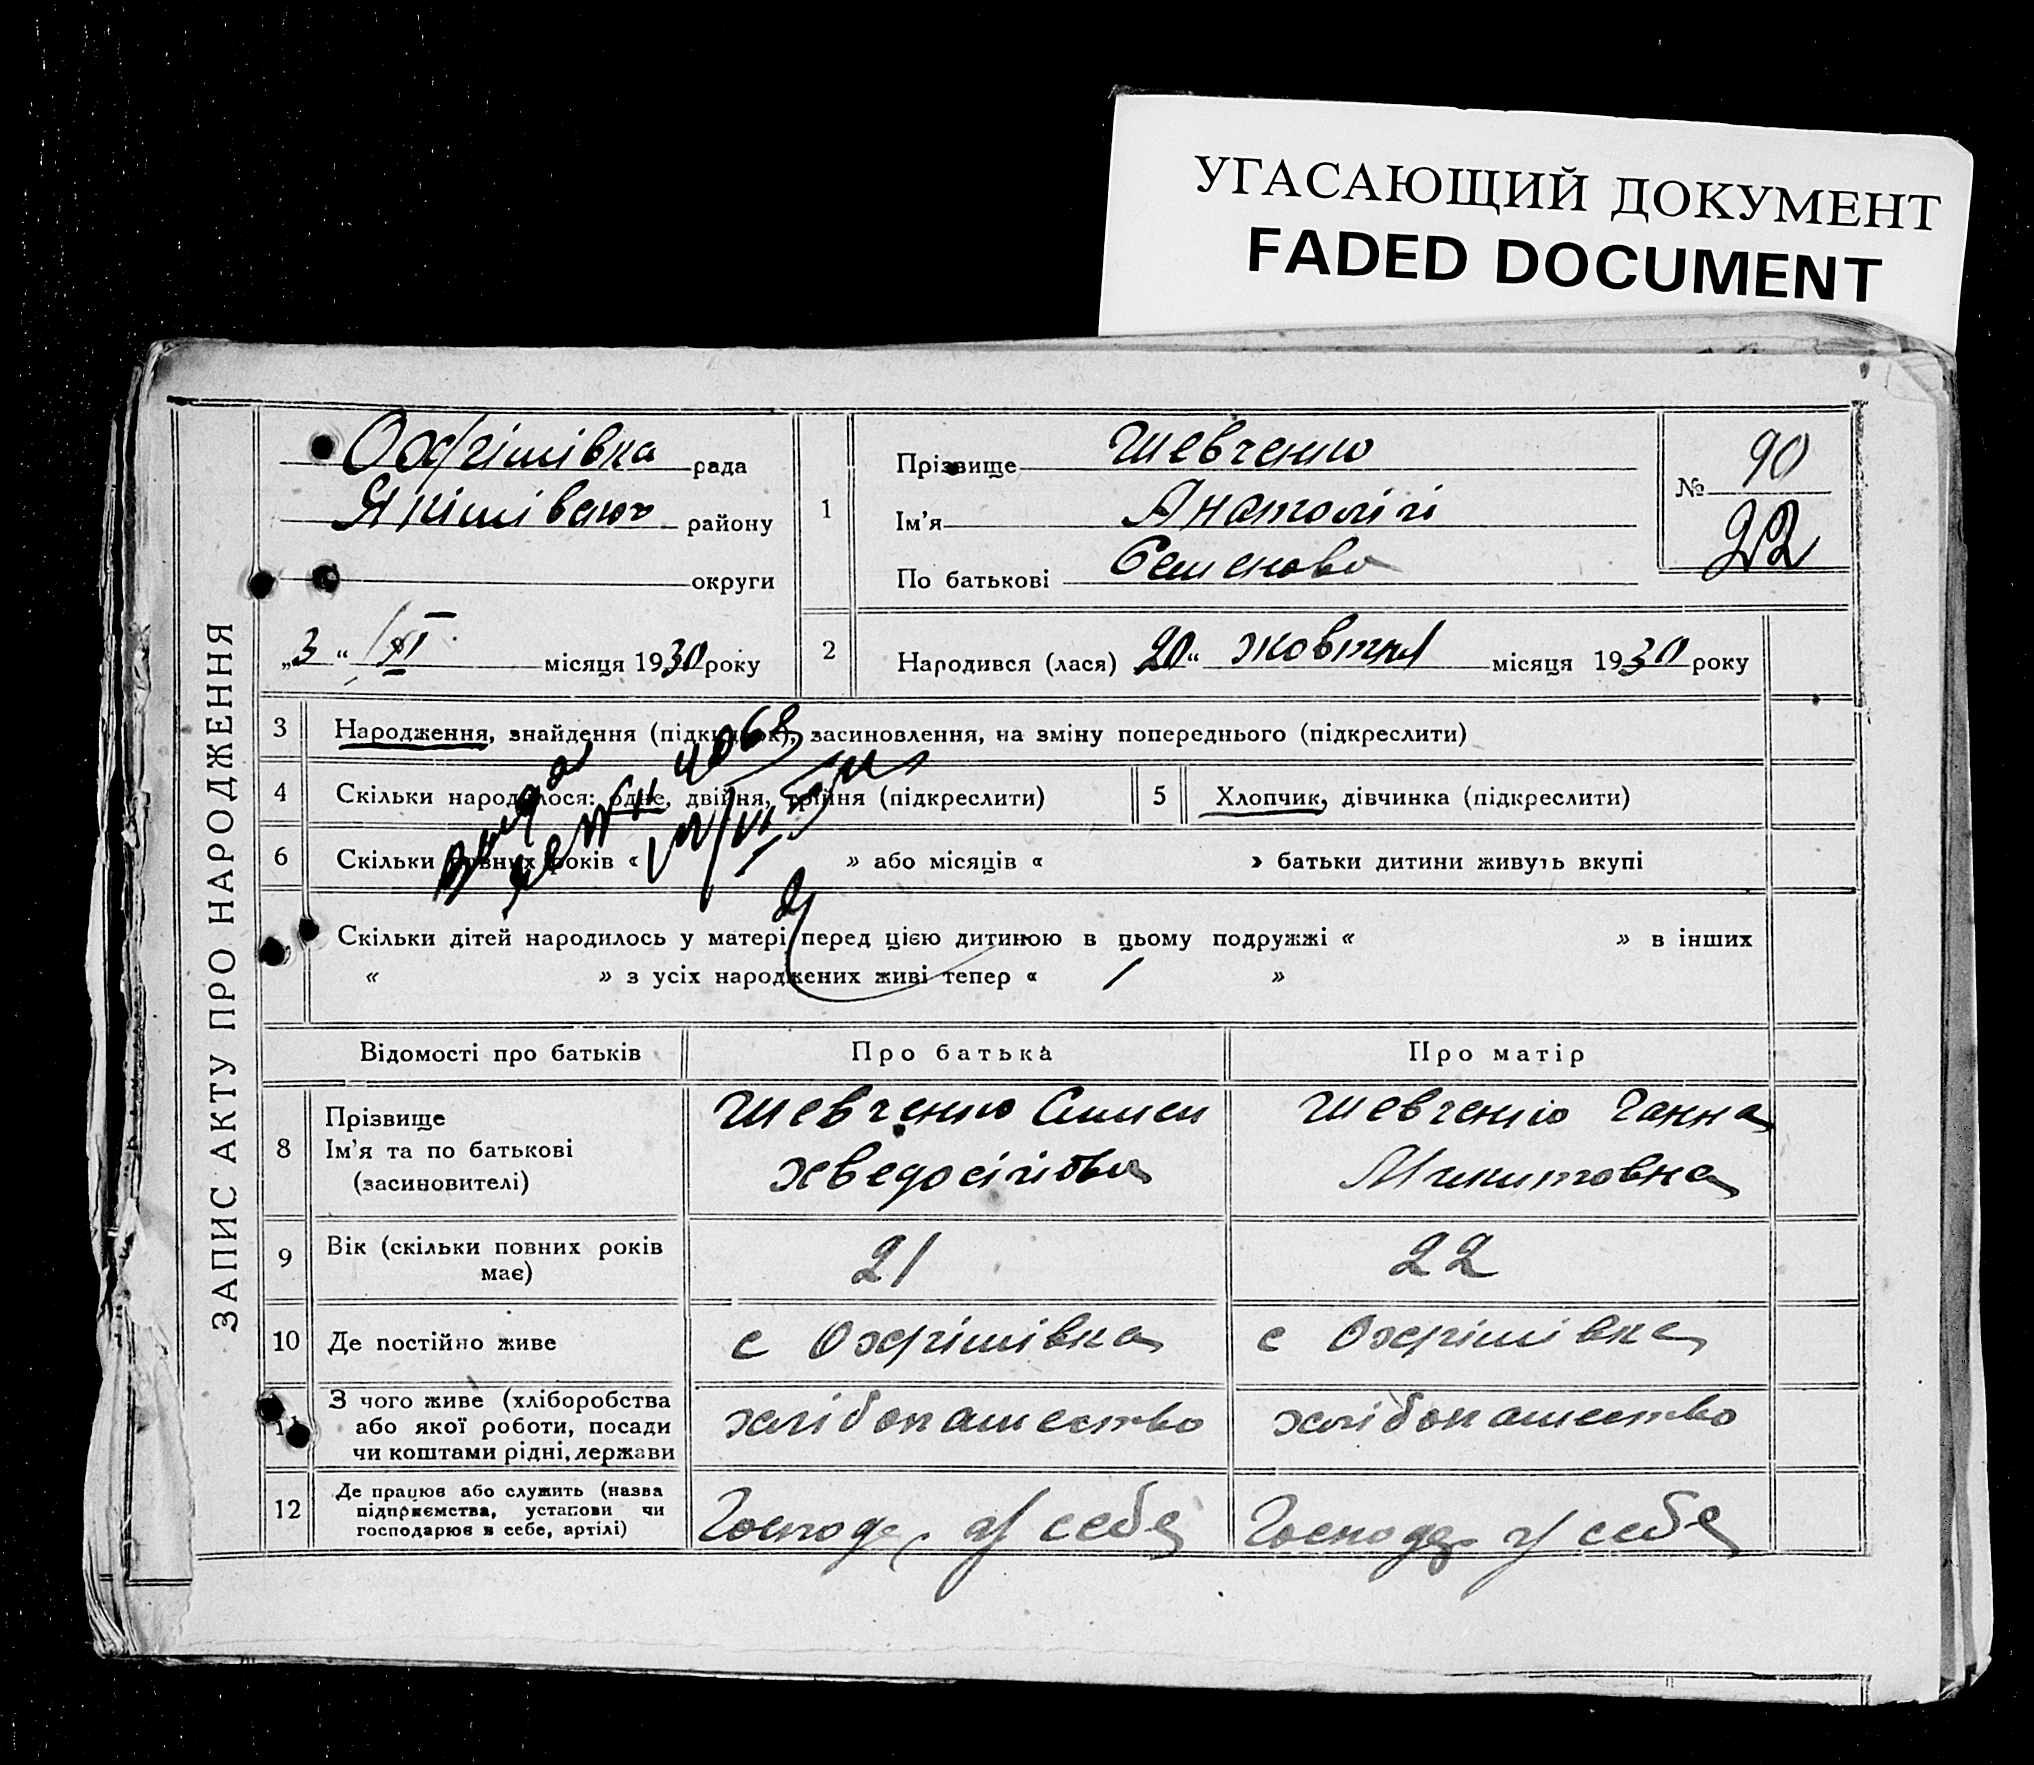 УГАСАЮЩИЙ ДОКУМЕНТ
FADED DOCUMENT
ЗАПИС АКТУ ПРО НАРОДЖЕННЯ
Охрімівка рада
району
округи
„3“ XI місяця 1930 року
1
Прізвище Шевченко
Ім'я Анатолій
По батькові
№ 90
22
2
Народився (лася) 20“ жовтня місяця 1930 року
3 Народження, знайдення (підкидьок), засиновлення, на зміну попереднього (підкреслити)
4 Скільки народилося: одне, двійня, трійня (підкреслити)
5 Хлопчик, дівчинка (підкреслити)
6 Скільки повних років « » або місяців « » батьки дитини живуть вкупі
Скільки дітей народилось у матері перед цією дитиною в цьому подружжі « » в інших
« » з усіх народжених живі тепер « 1 »
Відомості про батьків Про батька Про матір
8 Прізвище
Ім'я та по батькові
(засиновителі)
Шевченко Симен
Хведосійов
Шевченко Ганна
Микитовна
9 Вік (скільки повних років
має)
21 22
10 Де постійно живе с Охрімівка с Охрімівка
З чого живе (хліборобства
або якої роботи, посади
чи коштами рідні, держави
хлібопашество хлібопашество
12 Де працює або служить (назва
підприємства, установи чи
господарює в себе, артілі)
Господ. у себе Господар у себе